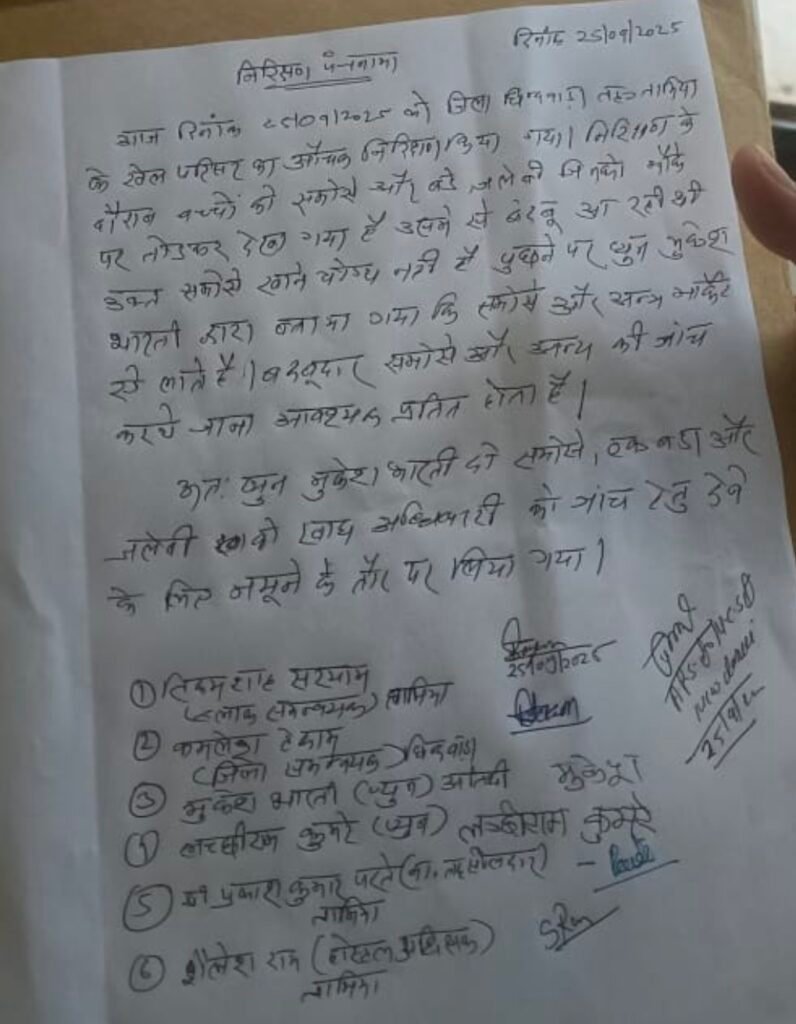 दिनांक 25/09/2025
निरिक्षण पंचनामा
आज दिनांक 25/09/2025 को जिला छिन्दवाड़ा तह० तामिया
के खेल परिसर का औचक निरिक्षण किया गया। निरिक्षण के
दौरान बच्चों को समोसे और बडे जलेबी जिनको मौके
पर तोडकर देखा गया है उसमे से बदबू आ रही थी
उक्त समोसे खाने योग्य नही है पुछने पर प्युन मुकेश
भारती द्वारा बताया गया कि समोसे और अन्य मार्केट
से लाते है। बदबूदार समोसे और अन्य की जांच
कराये जाना आवश्यक प्रतित होता है।
अतः प्युन मुकेश भारती दो समोसे, एक बडा और
जलेबी को खाद्य अधिकारी को जांच हेतु देने
के लिए नमूने के तौर पर लिया गया।
25/09/2025
① तिकम शाह सरयाम
(ब्लाक समन्वयक) तामिया
② कमलेश टेकाम
(जिला समन्वयक) छिंदवाडा
③ मुकेश भारती (प्युन) मुकेश
④ लच्छीराम कुमरे (प्युन) लच्छीराम कुमरे
⑤ प्रकाश कुमार परते (ना. तहसीलदार) -
तामिया
⑥ शैलेश राय (होस्टल अधिक्षक)
तामिया
New Delhi